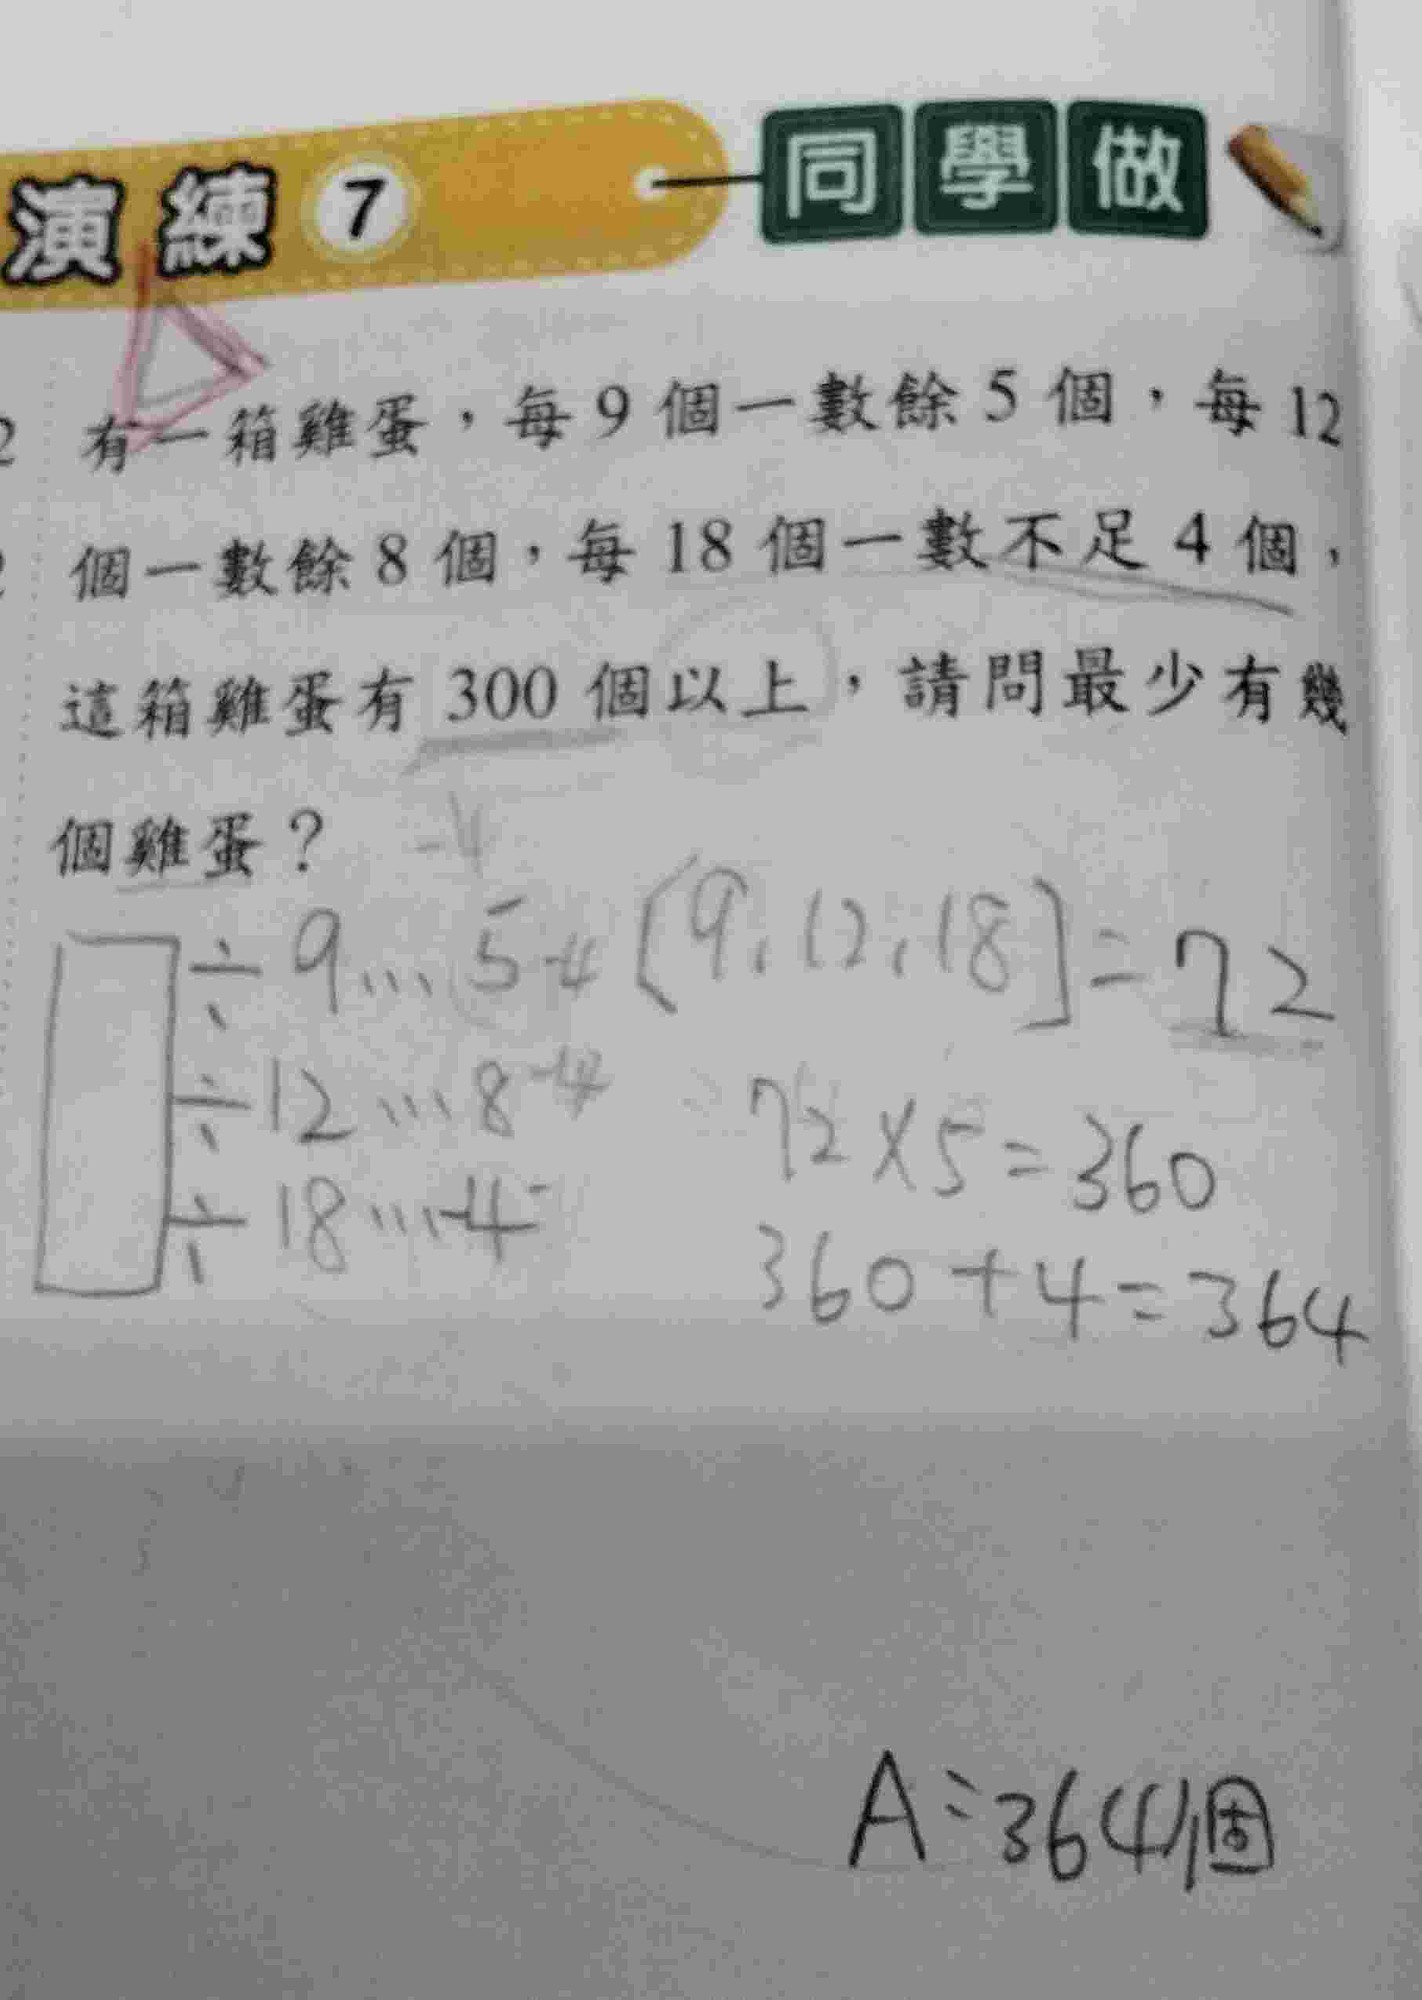 演練 7 同學做
有一箱雞蛋，每9個一數餘5個，每12
個一數餘8個，每18個一數不足4個，
這箱雞蛋有300個以上，請問最少有幾
個雞蛋？
-4
÷9…5-4 [9,12,18]=72
÷12…8-4
72×5=360
÷18…-4
360+4=364
A=364個